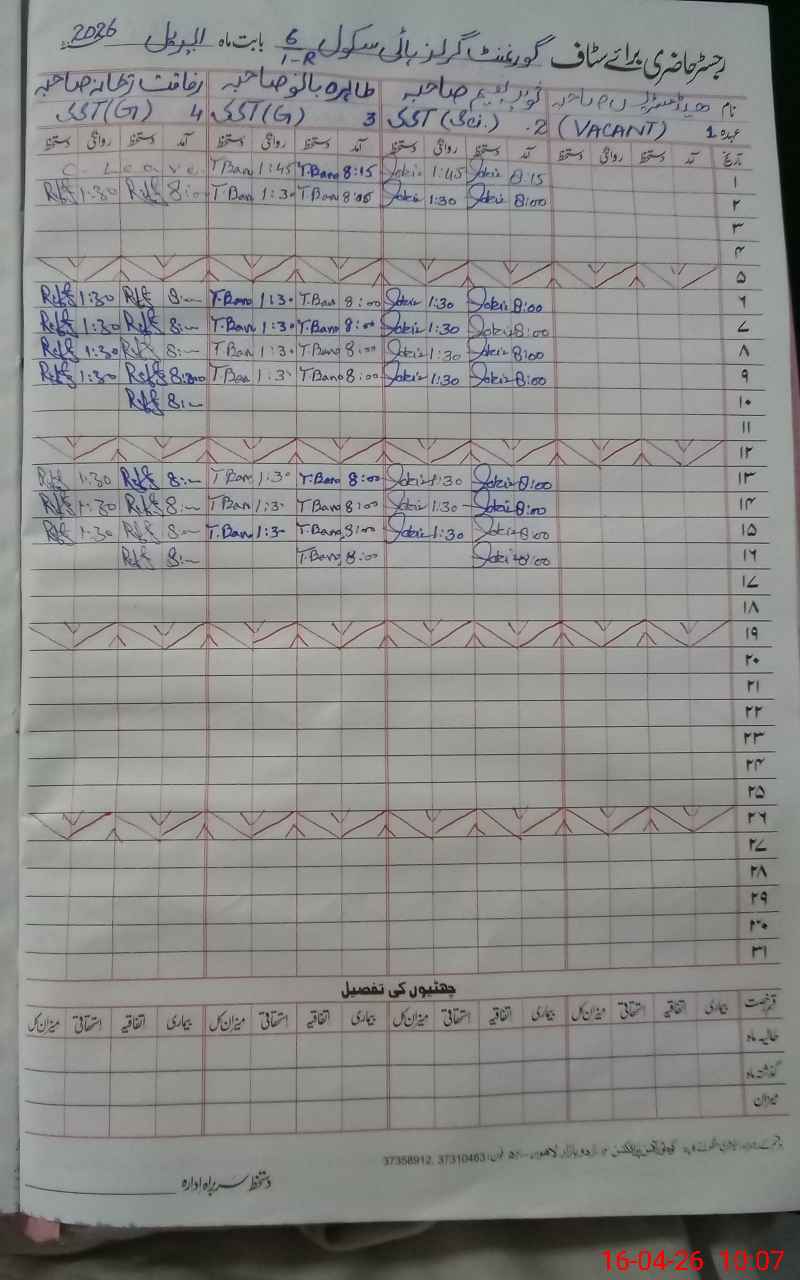 رجسٹر حاضری برائے سٹاف گورنمنٹ گرلز ہائی سکول 6/1-R بابت ماہ اپریل 2026
نام ہیڈمسٹریس صاحبہ صاحبہ طاہرہ بانو صاحبہ صاحبہ
عہدہ 1 (VACANT) 2. SST (Sci.) 3 SST (G) 4 SST (G)
تاریخ آمد دستخط روانگی دستخط آمد دستخط روانگی دستخط آمد دستخط روانگی دستخط آمد دستخط روانگی دستخط
۱ 8:15 1:45 8:15 T.Bano 1:45 T.Bano C. Leave
۲ 8:00 1:30 8:05 T.Bano 1:30 T.Bano 8:00 1:30
۳
۴
۵
۶ 8:00 1:30 8:00 T.Bano 1:30 T.Bano 8:— 1:30
۷ 8:00 1:30 8:00 T.Bano 1:30 T.Bano 8:— 1:30
۸ 8:00 1:30 8:00 T.Bano 1:30 T.Bano 8:— 1:30
۹ 8:00 1:30 8:00 T.Bano 1:30 T.Bano 8:00 1:30
۱۰ 8:—
۱۱
۱۲
۱۳ 8:00 1:30 8:00 T.Bano 1:30 T.Bano 8:— 1:30
۱۴ 8:00 1:30 8:00 T.Bano 1:30 T.Bano 8:— 1:30
۱۵ 8:00 1:30 8:00 T.Bano 1:30 T.Bano 8:— 1:30
۱۶ 8:00 8:00 T.Bano 8:—
۱۷
۱۸
۱۹
۲۰
۲۱
۲۲
۲۳
۲۴
۲۵
۲۶
۲۷
۲۸
۲۹
۳۰
۳۱
چھٹیوں کی تفصیل
قسم رخصت بیماری اتفاقیہ استحقاقی میزان کل بیماری اتفاقیہ استحقاقی میزان کل بیماری اتفاقیہ استحقاقی میزان کل بیماری اتفاقیہ استحقاقی میزان کل
حالیہ ماہ
گذشتہ ماہ
میزان
اردو بازار لاہور فون: 37310463, 37358912
دستخط سربراہ ادارہ
16-04-26 10:07